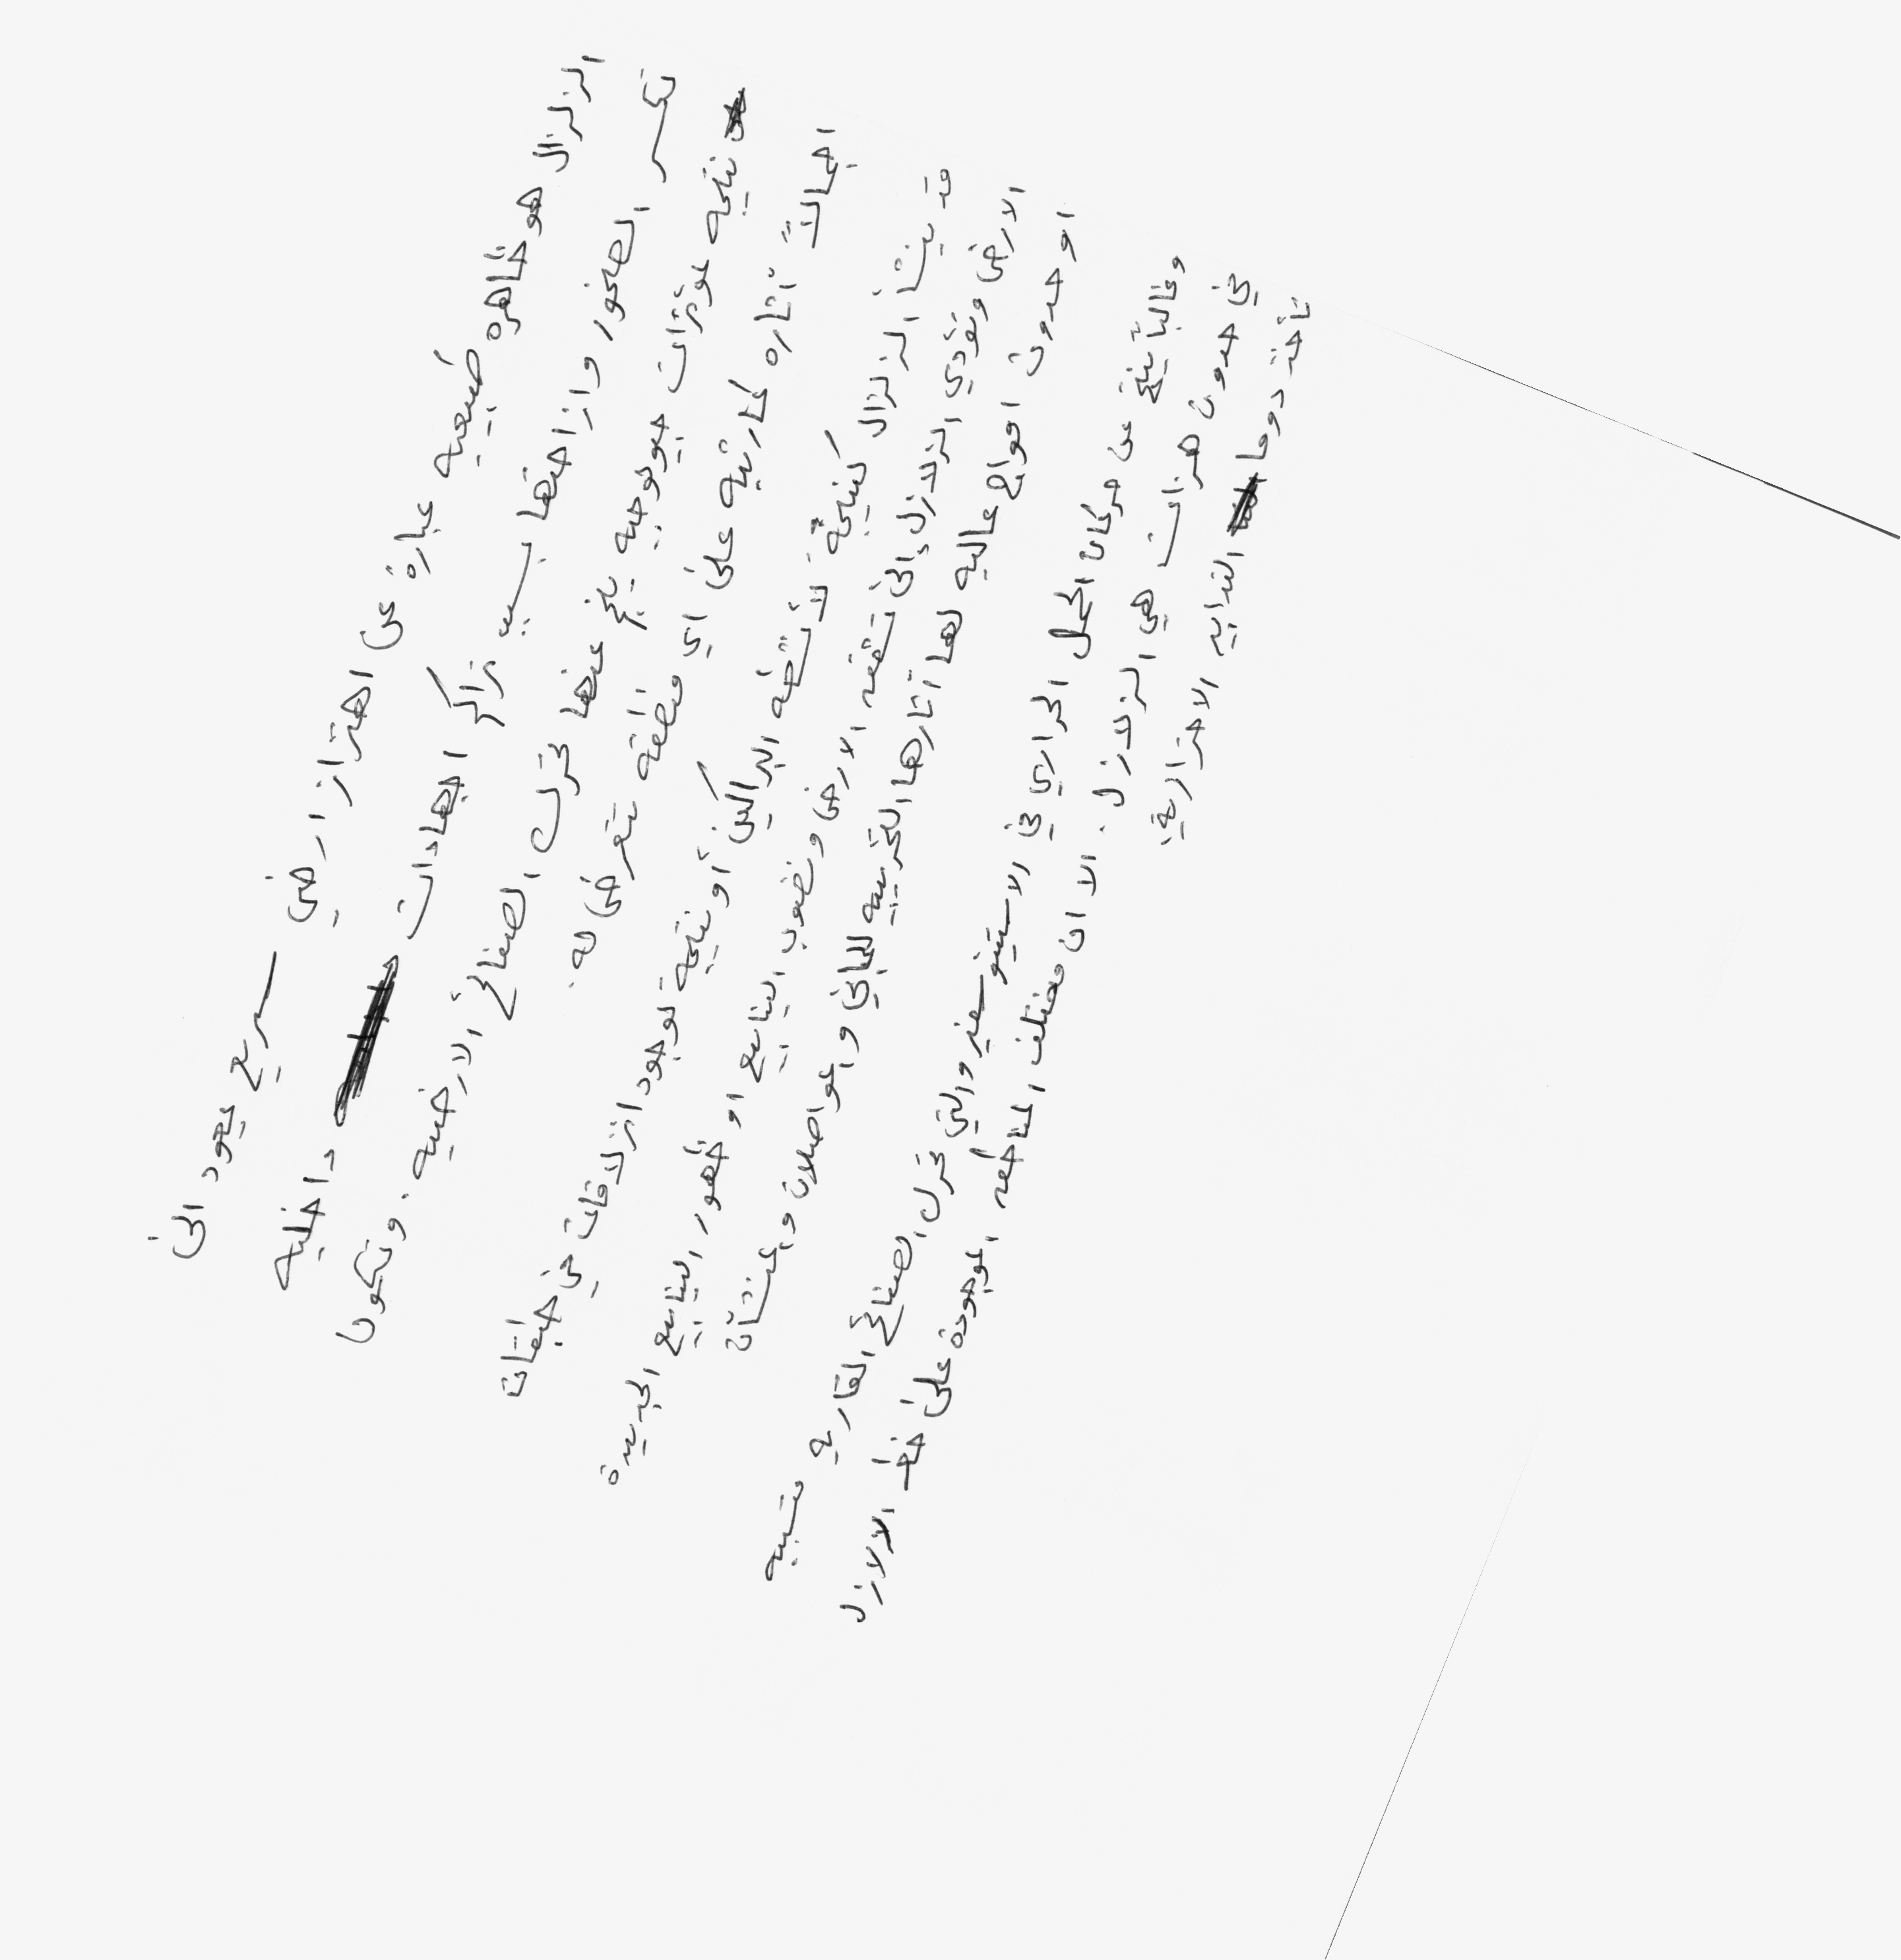 الزلزال هو ظاهره طبيعيه عبارة عن اهتزاز ارضي سريع يعود الى
تكسر الصخور وازاحتها بسبب تراكم اجهادات داخليه
نتيجه مؤثرات جيولوجيه ينجم عنها تحرك الصفائح الارضيه. وتكون
اجمالاً آثاره كارثيه على اي منطقه تتعرض له.
قد ينشأ الزلزال كنتيجة لأنشطه البراكين أو نتيجة لوجود انزلاقات في طبقات
الارض وتؤدي الزلازل إلى تشقق الارض ونضوب الينابيع او ظهور الينابيع الجديدة
او حدوث امواج عاليه لها آثارها التخريبيه للمباني والمواصلات والمنشآت
وغالباً ينتج عن حركات الحمل الحراري في الاستينوسفير والتي تحرك الصفائح القاريه متسببه
في حدوث هزات هي الزلازل. الا ان مختلف المناطق الموجودة على خط الزلازل
تأخذ دوما التدابير الاحترازية.